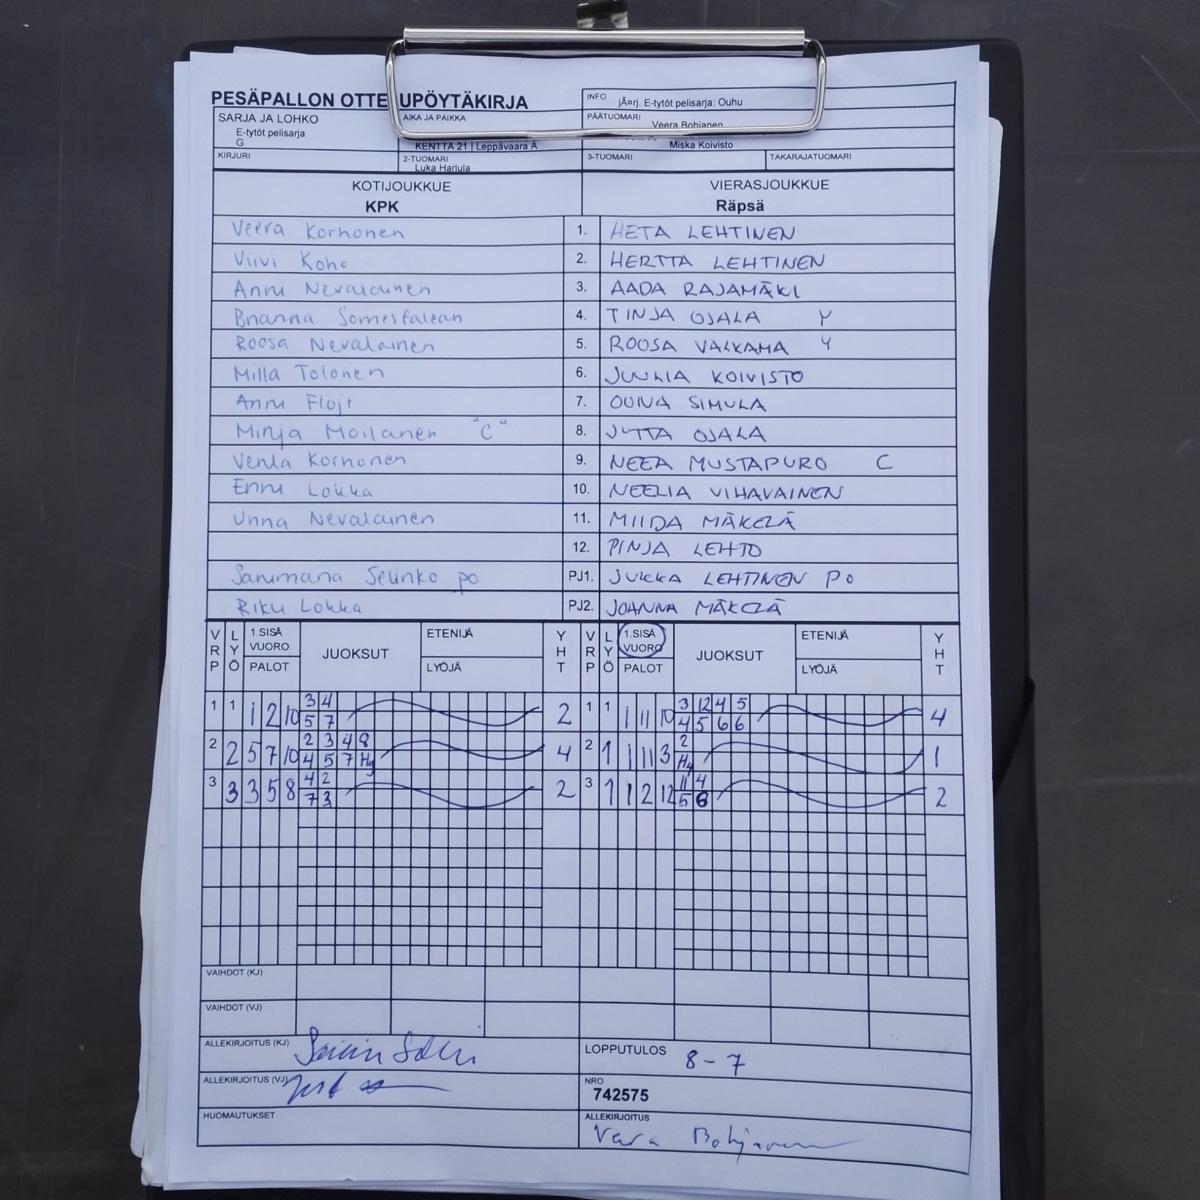 PESÄPALLON OTTE UPÖYTÄKIRJA
INFO jÃ¤rj. E-tytöt pelisarja: Ouhu
SARJA JA LOHKO
E-tytöt pelisarja
G
AIKA JA PAIKKA
KENTTÄ 21 | Leppävaara A
PÄÄTUOMARI
Veera Bohjanen
Miska Koivisto
KIRJURI
2-TUOMARI
Luka Harjula
3-TUOMARI
TAKARAJATUOMARI
KOTIJOUKKUE VIERASJOUKKUE
KPK Räpsä
Veera Korhonen 1. HETA LEHTINEN
Viivi Koho 2. HERTTA LEHTINEN
Anni Nevalainen 3. AADA RAJAMÄKI
4. TINJA OJALA Y
Roosa Nevalainen 5. ROOSA VALKAMA Y
Milla Tolonen 6. JUULIA KOIVISTO
Anni Flöjt 7. OUNA SIMULA
Minja Moilanen "C" 8. JUTTA OJALA
Venla Korhonen 9. NEEA MUSTAPURO C
Enni Lokka 10. NEELIA VIHAVAINEN
Unna Nevalainen 11. MIIDA MÄKELÄ
12. PINJA LEHTO
Sanimaria Selinko po. PJ1. JUKKA LEHTINEN PO
Riku Lokka PJ2. JOHANNA MÄKELÄ
VRP LYÖ 1.SISÄ VUORO PALOT JUOKSUT ETENIJÄ LYÖJÄ YHT VRP LYÖ 1.SISÄ VUORO PALOT JUOKSUT ETENIJÄ LYÖJÄ YHT
3 4 3 12 4 5
1 1 1 2 10 2 1 1 1 11 10 4
5 7 4 5 6 6
2 3 4 8 2
2 2 5 7 10 4 2 1 1 11 3 1
4 5 7 H9 H4
4 2 11 4
3 3 3 5 8 2 3 1 1 2 12 2
7 3 5 8
VAIHDOT (KJ)
VAIHDOT (VJ)
ALLEKIRJOITUS (KJ)
LOPPUTULOS 8-7
ALLEKIRJOITUS (VJ)
NRO
742575
HUOMAUTUKSET
ALLEKIRJOITUS
Veera Bohjanen